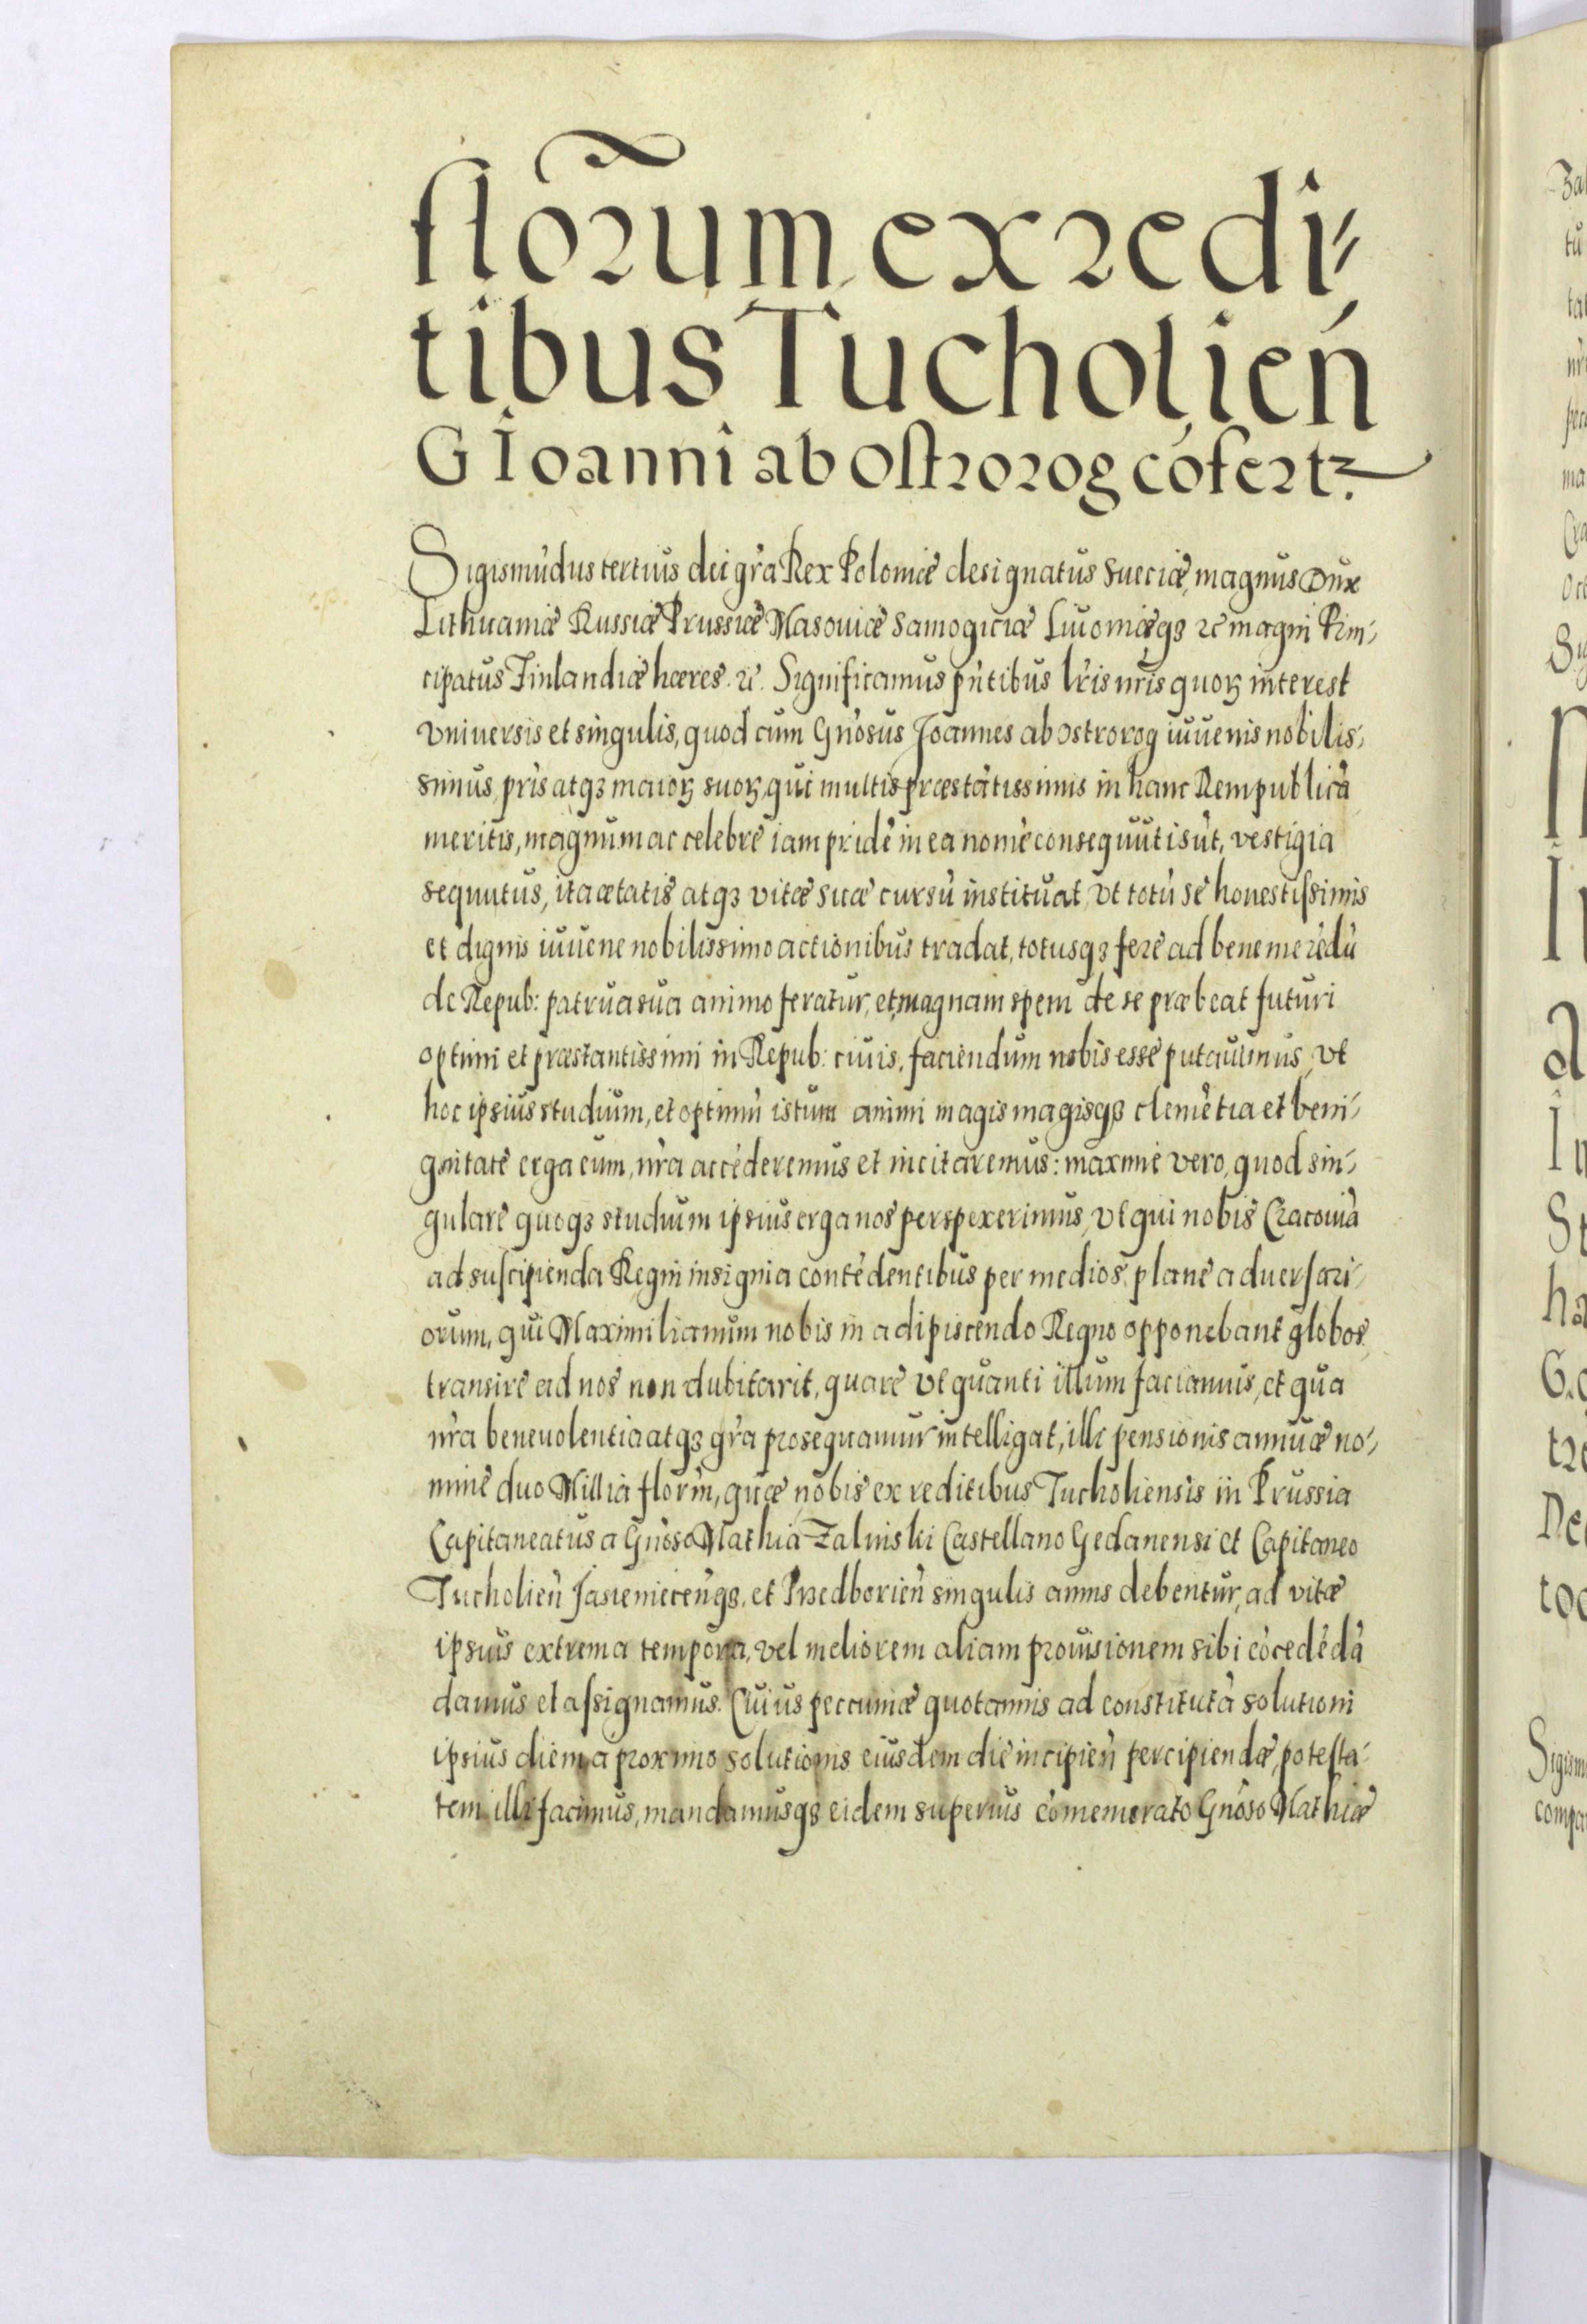 florum ex redi⸗
tibus Tucholień
G Ioanni ab Ostrorog cófert.
Sigismúdus tertius dei gr̃a Rex Poloniæ designatus Sueciæ, magnus Dux
Lithuaniæ Russiæ Prussiæ Masoviæ Samogiciæ Livoniæqꝫ ꝛc magni Prin⸗
cipatus Finlandiæ hæres. ꝛc. Significamus pñtibus lr̃is nr̃is quoꝝ interest
vniversis et singulis, quod cum Gñosus Joannes ab ostrorog iuuenis nobilis⸗
simus, pr̃is atqꝫ maioꝝ suoꝝ, qui multis præstātissimis in hanc Rempublicā
meritis, magnum ac celebrē iam pridē in ea nomē consequuti sūt, vestigia
sequutus, ita ætatis atqꝫ vitæ suæ cursū instituat, vt totū se honestissimis
et dignis iuuene nobilissimo actionibus tradat, totusqꝫ fere ad bene merēdū
de Repub: patrua sua animo feratur, et magnam spem de se præbeat futuri
optimi et præstantissimi in Repub: ciuis, faciendum nobis esse putauimus, vt
hoc ipsius studium, et optimū istum animi magis magisqꝫ clemētia et beni⸗
gnitate erga eum, nr̃a accēderemus et incitaremus: maxime vero, quod sin⸗
gulare quoqꝫ studium ipsius erga nos perspexerimus, vt qui nobis Cracoviā
ad suscipienda Regni insignia contēdentibus per medios, plane adversari⸗
orum, qui Maximilianum nobis in adipiscendo Regno opponebant globos,
transire ad nos non dubitarit, quare vt quanti illum faciamus, et qua
nr̃a benevolentia atqꝫ gr̃a prosequamur intelligat, illi pensionis annuæ no⸗
mine duo Millia florīn, quæ nobis ex reditibus Tucholiensis in Prussia
Capitaneatus a Gñoso Mathia Zalinski Castellano Gedanensi et Capitaneo
Tucholieñ Jasienieceñqꝫ, et Przedborieñ singulis annis debentur, ad vitæ
ipsius extrema tempora, vel meliorem aliam provisionem sibi cōcedēdā
damus et assignamus. Cuius peccuniæ quotannis ad constitutā solutioni
ipsius diem, a proximo solutionis eiusdem die incipieñ percipiendæ, potesta⸗
tem illi facimus, mandamusqꝫ eidem superius cōmemorato Gñoso Mathiæ